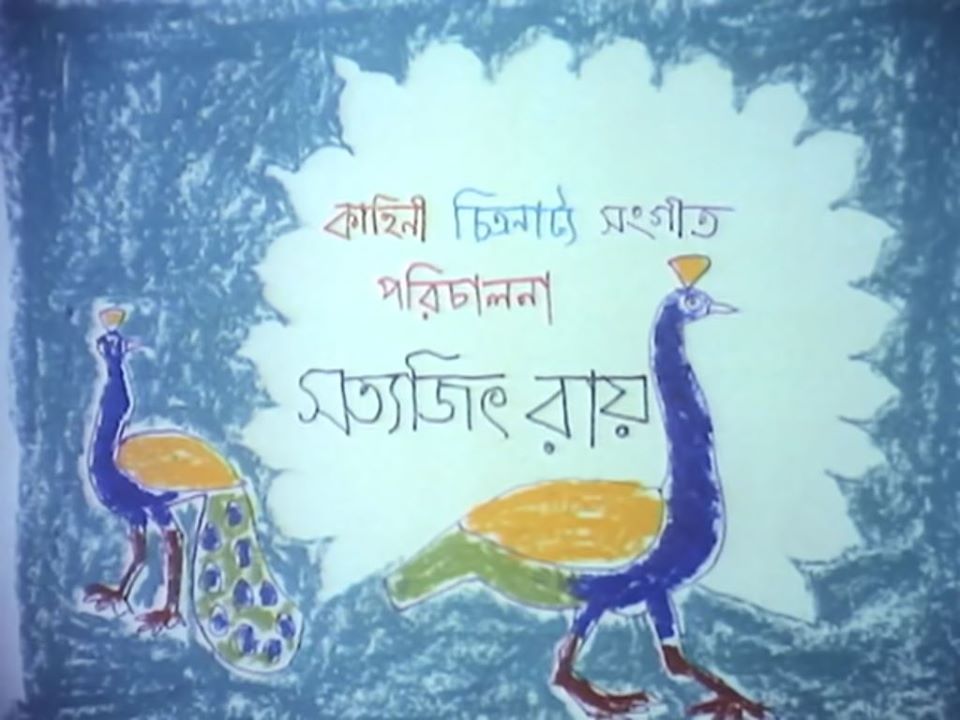 কাহিনী চিত্রনাট্য সংগীত
পরিচালনা
সত্যজিৎ রায়